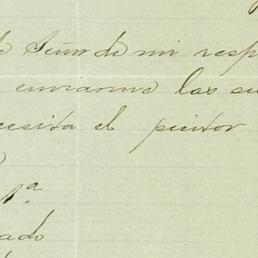 Señor de mi resp
enviarme las su
cesita el pintor
1ª
ado